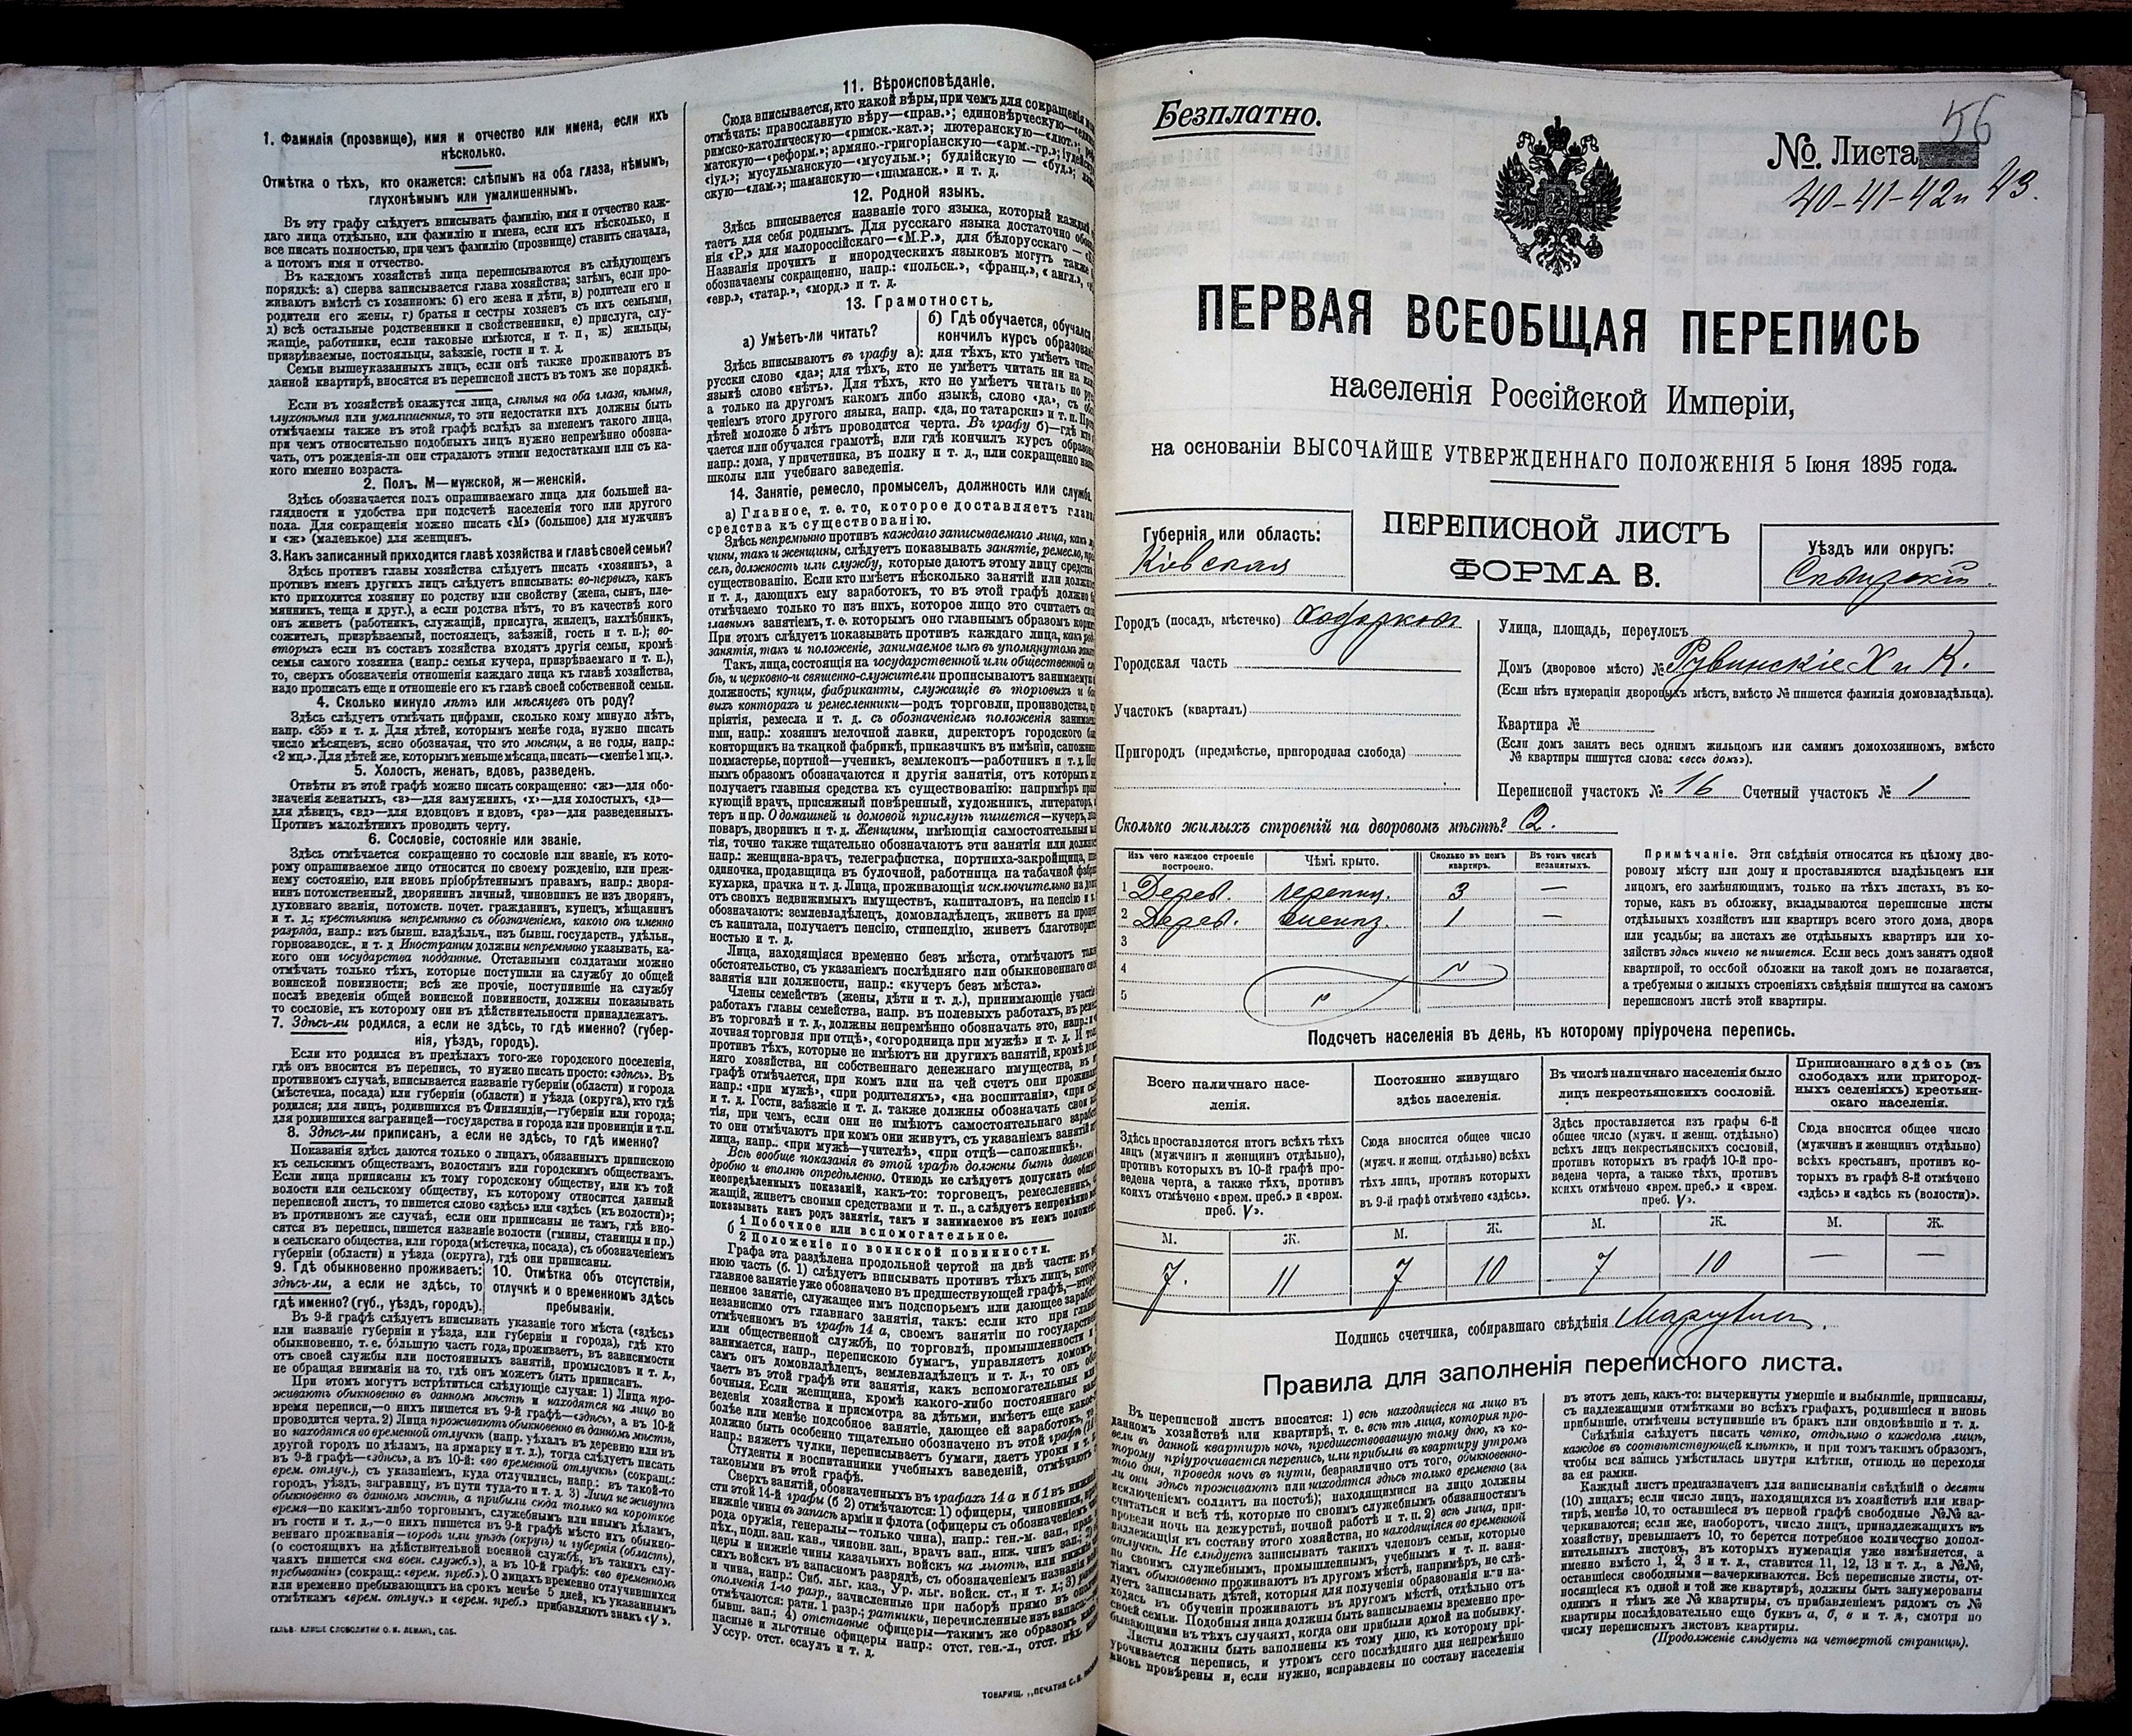 1. Фамилія (прозвище), имя и отчество или имена, если ихъ
нѣсколько.
Отмѣтка о тѣхъ, кто окажется: слѣпымъ на оба глаза, нѣмымъ,
глухонѣмымъ или умалишеннымъ.
Въ эту графу слѣдуетъ вписывать фамилію, имя и отчество каж-
даго лица отдѣльно, или фамилію и имена, если ихъ нѣсколько, и
все писать полностью, при чемъ фамилію (прозвище) ставить сначала,
а потомъ имя и отчество.
Въ каждомъ хозяйствѣ лица переписываются въ слѣдующемъ
порядкѣ: а) сперва записывается глава хозяйства; затѣмъ, если про-
живаютъ вмѣстѣ съ хозяиномъ: б) его жена и дѣти, в) родители его и
родители его жены, г) братья и сестры хозяевъ съ ихъ семьями,
д) всѣ остальные родственники и свойственники, е) прислуга, слу-
жащіе, работники, если таковые имѣются, и т. п, ж) жильцы,
призрѣваемые, постояльцы, заѣзжіе, гости и т. д.
Семьи вышеуказанныхъ лицъ, если онѣ также проживаютъ въ
данной квартирѣ, вносятся въ переписной листъ въ томъ же порядкѣ.
Если въ хозяйствѣ окажутся лица, слѣпыя на оба глаза, нѣмыя,
глухонѣмыя или умалишенныя, то эти недостатки ихъ должны быть
отмѣчаемы также въ этой графѣ вслѣдъ за именемъ такого лица,
при чемъ относительно подобныхъ лицъ нужно непремѣнно обозна-
чать, отъ рожденія-ли они страдаютъ этими недостатками или съ ка-
кого именно возраста.
2. Полъ. М—мужской, ж—женскій.
Здѣсь обозначается полъ опрашиваемаго лица для большей на-
глядности и удобства при подсчетѣ населенія того или другого
пола. Для сокращенія можно писать «М» (большое) для мужчинъ
и «ж» (маленькое) для женщинъ.
3. Какъ записанный приходится главѣ хозяйства и главѣ своей семьи?
Здѣсь противъ главы хозяйства слѣдуетъ писать «хозяинъ», а
противъ именъ другихъ лицъ слѣдуетъ вписывать: во-первыхъ, какъ
кто приходится хозяину по родству или свойству (жена, сынъ, пле-
мянникъ, теща и друг.), а если родства нѣтъ, то въ качествѣ кого
онъ живетъ (работникъ, служащій, прислуга, жилецъ, нахлѣбникъ,
сожитель, призрѣваемый, постоялецъ, заѣзжій, гость и т. п.); во-
вторыхъ если въ составъ хозяйства входятъ другія семьи, кромѣ
семьи самого хозяина (напр.: семья кучера, призрѣваемаго и т. п.),
то, сверхъ обозначенія отношенія каждаго лица къ главѣ хозяйства,
надо прописать еще и отношеніе его къ главѣ своей собственной семьи.
4. Сколько минуло лѣтъ или мѣсяцевъ отъ роду?
Здѣсь слѣдуетъ отмѣчать цифрами, сколько кому минуло лѣтъ,
напр. «35» и т. д. Для дѣтей, которымъ менѣе года, нужно писать
число мѣсяцевъ, ясно обозначая, что это мѣсяцы, а не годы, напр.:
«2 мц.». Для дѣтей же, которымъ меньше мѣсяца, писать—«менѣе 1 мц.».
5. Холостъ, женатъ, вдовъ, разведенъ.
Отвѣты въ этой графѣ можно писать сокращенно: «ж»—для обо-
значенія женатыхъ, «з»—для замужнихъ, «х»—для холостыхъ, «д»—
для дѣвицъ, «вд»—для вдовцовъ и вдовъ, «рз»—для разведенныхъ.
Противъ малолѣтнихъ проводить черту.
6. Сословіе, состояніе или званіе.
Здѣсь отмѣчается сокращенно то сословіе или званіе, къ кото-
рому опрашиваемое лицо относится по своему рожденію, или преж-
нему состоянію, или вновь пріобрѣтеннымъ правамъ, напр.: дворя-
нинъ потомственный, дворянинъ личный, чиновникъ не изъ дворянъ,
духовнаго званія, потомств. почет. гражданинъ, купецъ, мѣщанинъ
и т. д.; крестьянинъ непремѣнно съ обозначеніемъ, какого онъ именно
разряда, напр.: изъ бывш. владѣльч., изъ бывш. государств., удѣльн.,
горнозаводск., и т. д Иностранцы должны непремѣнно указывать, ка-
кого они государства подданные. Отставными солдатами можно
отмѣчать только тѣхъ, которые поступили на службу до общей
воинской повинности; всѣ же прочіе, поступившіе на службу
послѣ введенія общей воинской повинности, должны показывать
то сословіе, къ которому они въ дѣйствительности принадлежатъ.
7. Здѣсь-ли родился, а если не здѣсь, то гдѣ именно? (губер-
нія, уѣздъ, городъ).
Если кто родился въ предѣлахъ того-же городского поселенія,
гдѣ онъ вносится въ перепись, то нужно писать просто: «здѣсь». Въ
противномъ случаѣ, вписывается названіе губерніи (области) и города
(мѣстечка, посада) или губерніи (области) и уѣзда (округа), кто гдѣ
родился; для лицъ, родившихся въ Финляндіи,—губерніи или города;
для родившихся заграницей—государства и города или провинціи и т.п.
8. Здѣсь-ли приписанъ, а если не здѣсь, то гдѣ именно?
Показанія здѣсь даются только о лицахъ, обязанныхъ припискою
къ сельскимъ обществамъ, волостямъ или городскимъ обществамъ.
Если лица приписаны къ тому городскому обществу, или къ той
волости или сельскому обществу, къ которому относится данный
переписной листъ, то пишется слово «здѣсь» или «здѣсь (къ волости)»;
въ противномъ же случаѣ, если они приписаны не тамъ, гдѣ вно-
сятся въ перепись, пишется названіе волости (гмины, станицы и пр.)
и сельскаго общества, или города (мѣстечка, посада), съ обозначеніемъ
губерніи (области) и уѣзда (округа), гдѣ они приписаны.
9. Гдѣ обыкновенно проживаетъ:
здѣсь-ли, а если не здѣсь, то
гдѣ именно? (губ., уѣздъ, городъ).
10. Отмѣтка объ отсутствіи,
отлучкѣ и о временномъ здѣсь
пребываніи.
Въ 9-й графѣ слѣдуетъ вписывать указаніе того мѣста («здѣсь»
или названіе губерніи и уѣзда, или губерніи и города), гдѣ кто
обыкновенно, т. е. бо́льшую часть года, проживаетъ, въ зависимости
отъ своей службы или постоянныхъ занятій, промысловъ и т. д.,
не обращая вниманія на то, гдѣ онъ можетъ быть приписанъ.
При этомъ могутъ встрѣтиться слѣдующіе случаи: 1) Лица про-
живаютъ обыкновенно въ данномъ мѣстѣ и находятся на лицо во
время переписи,—о нихъ пишется въ 9-й графѣ—«здѣсь», а въ 10-й
проводится черта. 2) Лица проживаютъ обыкновенно въ данномъ мѣстѣ,
но находятся во временной отлучкѣ (напр. уѣхалъ въ деревню или въ
другой городъ по дѣламъ, на ярмарку и т. д.), тогда слѣдуетъ писать
въ 9-й графѣ—«здѣсь», а въ 10-й: «во временной отлучкѣ» (сокращ.:
врем. отлуч.), съ указаніемъ, куда отлучились, напр.: въ такой-то
городъ, уѣздъ, заграницу, въ пути туда-то и т. д. 3) Лица не живутъ
обыкновенно въ данномъ мѣстѣ, а прибыли сюда только на короткое
время—по какимъ-либо торговымъ, служебнымъ или инымъ дѣламъ,
въ гости и т. д.,—о нихъ пишется въ 9-й графѣ мѣсто ихъ обыкно-
веннаго проживанія—городъ или уѣздъ (округъ) и губернія (область),
(о состоящихъ на дѣйствительной военной службѣ, въ такихъ слу-
чаяхъ пишется «на воен. службѣ»), а въ 10-й графѣ: «во временномъ
пребываніи» (сокращ.: «врем. преб.»). О лицахъ временно отлучившихся
или временно пребывающихъ на срокъ менѣе 5 дней, къ указаннымъ
отмѣткамъ «врем. отлуч.» и «врем. преб.» прибавляютъ знакъ «V».
ГАЛЬВ. КЛИШЕ СЛОВОЛИТНИ О. И. ЛЕМАНЪ, СПБ.
11. Вѣроисповѣданіе.
Сюда вписывается, кто какой вѣры, при чемъ для сокращенія
отмѣчать: православную вѣру—«прав.»; единовѣрческую—
римско-католическую—«римск.-кат.»; лютеранскую—«лют.»;
матскую—«реформ.»; армяно-григоріанскую—«арм.-гр.»;
«іуд.»; мусульманскую—«мусульм.»; буддійскую — «буд.»;
скую—«лам.»; шаманскую—«шаманск.» и т. д.
12. Родной языкъ.
Здѣсь вписывается названіе того языка, который каждый
таетъ для себя роднымъ. Для русскаго языка достаточно
нія «Р.» для малороссійскаго—«М.Р.», для бѣлорусскаго —
Названія прочихъ и инородческихъ языковъ могутъ также
обозначаемы сокращенно, напр.: «польск.», «франц.», «англ.»,
«евр.», «татар.», «морд.» и т. д.
13. Грамотность.
а) Умѣетъ-ли читать?
б) Гдѣ обучается, обучался
кончилъ курсъ
Здѣсь вписываютъ въ графу а): для тѣхъ, кто умѣетъ
русски слово «да»; для тѣхъ, кто не умѣетъ читать ни на
языкѣ слово «нѣтъ». Для тѣхъ, кто не умѣетъ читать по
а только на другомъ какомъ либо языкѣ, слово «да», съ
ченіемъ этого другого языка, напр. «да, по татарски» и т. п.
дѣтей моложе 5 лѣтъ проводится черта. Въ графу б)—гдѣ
чается или обучался грамотѣ, или гдѣ кончилъ курсъ
напр.: дома, у причетника, въ полку и т. д., или сокращенно
школы или учебнаго заведенія.
14. Занятіе, ремесло, промыселъ, должность или служба.
а) Главное, т. е. то, которое доставляетъ
средства къ существованію.
Здѣсь непремѣнно противъ каждаго записываемаго лица, какъ
чины, такъ и женщины, слѣдуетъ показывать занятіе, ремесло,
селъ, должность или службу, которые даютъ этому лицу
существованію. Если кто имѣетъ нѣсколько занятій или
и т. д., дающихъ ему заработокъ, то въ этой графѣ должно
отмѣчаемо только то изъ нихъ, которое лицо это считаетъ
главнымъ занятіемъ, т. е. которымъ оно главнымъ образомъ
При этомъ слѣдуетъ показывать противъ каждаго лица, какъ
занятія, такъ и положеніе, занимаемое имъ въ упомянутомъ
Такъ, лица, состоящія на государственной или общественной
бѣ, и церковно-и священно-служители прописываютъ
должность; купцы, фабриканты, служащіе въ торговыхъ и
выхъ конторахъ и ремесленники—родъ торговли, производства,
пріятія, ремесла и т. д. съ обозначеніемъ положенія
ими, напр.: хозяинъ мелочной лавки, директоръ городского
конторщикъ на ткацкой фабрикѣ, приказчикъ въ имѣніи,
подмастерье, портной—ученикъ, землекопъ—работникъ и т. д.
нымъ образомъ обозначаются и другія занятія, отъ которыхъ
получаетъ главныя средства къ существованію: напримѣръ
кующій врачъ, присяжный повѣренный, художникъ, литераторъ,
теръ и пр. О домашней и домовой прислугѣ пишется—кучеръ,
поваръ, дворникъ и т. д. Женщины, имѣющія самостоятельныя
тія, точно также тщательно обозначаютъ эти занятія или
напр.: женщина-врачъ, телеграфистка, портниха-закройщица,
одиночка, продавщица въ булочной, работница на табачной
кухарка, прачка и т. д. Лица, проживающія исключительно на
отъ своихъ недвижимыхъ имуществъ, капиталовъ, на пенсію и
обозначаютъ: землевладѣлецъ, домовладѣлецъ, живетъ на
съ капитала, получаетъ пенсію, стипендію, живетъ
ностью и т. д.
Лица, находящіяся временно безъ мѣста, отмѣчаютъ
обстоятельство, съ указаніемъ послѣдняго или обыкновеннаго
занятія или должности, напр.: «кучеръ безъ мѣста».
Члены семействъ (жены, дѣти и т. д.), принимающіе участіе
работахъ главы семейства, напр. въ полевыхъ работахъ, въ
въ торговлѣ и т. д., должны непремѣнно обозначать это, напр.:
лочная торговля при отцѣ», «огородница при мужѣ» и т. д.
противъ тѣхъ, которые не имѣютъ ни другихъ занятій, кромѣ
няго хозяйства, ни собственнаго денежнаго имущества, въ
графѣ отмѣчается, при комъ или на чей счетъ они
напр.: «при мужѣ», «при родителяхъ», «на воспитаніи»,
и т. д. Гости, заѣзжіе и т. д. также должны обозначать свои
тія, при чемъ, если они не имѣютъ самостоятельнаго
то они отмѣчаютъ при комъ они живутъ, съ указаніемъ занятій
лица, напр.: «при мужѣ—учителѣ», «при отцѣ—сапожникѣ».
Всѣ вообще показанія въ этой графѣ должны быть даваемы
дробно и вполнѣ опредѣленно. Отнюдь не слѣдуетъ допускать
неопредѣленныхъ показаній, какъ-то: торговецъ, ремесленникъ,
жащій, живетъ своими средствами и т. п., а слѣдуетъ непремѣнно
показывать какъ родъ занятія, такъ и занимаемое въ немъ
б 1 Побочное или вспомогательное.
2 Положеніе по воинской повинности.
Графа эта раздѣлена продольной чертой на двѣ части:
нюю часть (б. 1) слѣдуетъ вписывать противъ тѣхъ лицъ,
главное занятіе уже обозначено въ предшествующей графѣ,—
пенное занятіе, служащее имъ подспорьемъ или дающее
независимо отъ главнаго занятія, такъ: если кто при
отмѣченномъ въ графѣ 14 а, своемъ занятіи по
или общественной службѣ, по торговлѣ, промышленности и
занимается, напр., перепискою бумагъ, управляетъ домомъ,
самъ онъ домовладѣлецъ, землевладѣлецъ и т. д., то онъ
чаетъ въ этой графѣ эти занятія, какъ вспомогательныя
бочныя. Если женщина, кромѣ какого-либо постояннаго
веденія хозяйства и присмотра за дѣтьми, имѣетъ еще
болѣе или менѣе подобное занятіе, дающее ей заработокъ,
должно быть особенно тщательно обозначено въ этой графѣ
напр.: вяжетъ чулки, переписываетъ бумаги, даетъ уроки и т.
Студенты и воспитанники учебныхъ заведеній, отмѣчаютъ
таковыми въ этой графѣ.
Сверхъ занятій, обозначенныхъ въ графахъ 14 а и б 1 въ
сти этой 14-й графы (б 2) отмѣчаются: 1) офицеры, чиновники,
нижніе чины въ запасѣ арміи и флота (офицеры съ обозначеніемъ
рода оружія, генералы—только чина), напр.: ген.-м. зап.,
пѣх., подп. зап. кав., чиновн. зап., врачъ зап., ниж. чинъ зап.; 2)
церы и нижніе чины казачьихъ войскъ на льготѣ, или
сихъ войскъ въ запасномъ разрядѣ, съ обозначеніемъ названія
и чина, напр.: Сиб. льг. каз., Ур. льг. войск. ст., и т. д.; 3)
ополченія 1-го разр., зачисленные при наборѣ прямо въ
отмѣчаются: ратн. 1 разр.; ратники, перечисленные изъ запаса—
бывш. зап.; 4) отставные офицеры—такимъ же образомъ
пасные и льготные офицеры напр.: отст. ген.-л., отст. пѣх.
Уссур. отст. есаулъ и т. д.
ТОВАРИЩ. „ПЕЧАТНЯ С. П.
Безплатно.
56
№. Листа
40-41-42 и 43.
ПЕРВАЯ ВСЕОБЩАЯ ПЕРЕПИСЬ
населенія Россійской Имперіи,
на основаніи ВЫСОЧАЙШЕ УТВЕРЖДЕННАГО ПОЛОЖЕНІЯ 5 Іюня 1895 года.
ПЕРЕПИСНОЙ ЛИСТЪ
ФОРМА В.
Губернія или область:
Кіевская
Уѣздъ или округъ:
Сквирскій
Городъ (посадъ, мѣстечко) Ходорков
Городская часть
Участокъ (кварталъ)
Пригородъ (предмѣстье, пригородная слобода)
Улица, площадь, переулокъ
Домъ (дворовое мѣсто) № Рувинскіе Х и К.
(Если нѣтъ нумераціи дворовыхъ мѣстъ, вмѣсто № пишется фамилія домовладѣльца).
Квартира №
(Если домъ занятъ весь однимъ жильцомъ или самимъ домохозяиномъ, вмѣсто
№ квартиры пишутся слова: «весь домъ»).
Переписной участокъ № 16 Счетный участокъ № 1
Сколько жилыхъ строеній на дворовомъ мѣстѣ? 2.
Изъ чего каждое строеніе построено. Чѣмъ крыто. Сколько въ немъ квартиръ. Въ томъ числѣ незанятыхъ.
1 Дерев. черепиц. 3 —
2 Дерев. 1 —
3
4
5
Примѣчаніе. Эти свѣдѣнія относятся къ цѣлому дво-
ровому мѣсту или дому и проставляются владѣльцемъ или
лицомъ, его замѣняющимъ, только на тѣхъ листахъ, въ ко-
торые, какъ въ обложку, вкладываются переписные листы
отдѣльныхъ хозяйствъ или квартиръ всего этого дома, двора
или усадьбы; на листахъ же отдѣльныхъ квартиръ или хо-
зяйствъ здѣсь ничего не пишется. Если весь домъ занятъ одной
квартирой, то особой обложки на такой домъ не полагается,
а требуемыя о жилыхъ строеніяхъ свѣдѣнія пишутся на самомъ
переписномъ листѣ этой квартиры.
Подсчетъ населенія въ день, къ которому пріурочена перепись.
Всего наличнаго насе-
ленія.
Здѣсь проставляется итогъ всѣхъ тѣхъ
лицъ (мужчинъ и женщинъ отдѣльно),
противъ которыхъ въ 10-й графѣ про-
ведена черта, а также тѣхъ, противъ
коихъ отмѣчено «врем. преб.» и «врем.
преб. V».
Постоянно живущаго
здѣсь населенія.
Сюда вносится общее число
(мужч. и женщ. отдѣльно) всѣхъ
тѣхъ лицъ, противъ которыхъ
въ 9-й графѣ отмѣчено «здѣсь».
Въ числѣ наличнаго населенія было
лицъ некрестьянскихъ сословій.
Здѣсь проставляется изъ графы 6-й
общее число (мужч. и женщ. отдѣльно)
всѣхъ лицъ некрестьянскихъ сословій,
противъ которыхъ въ графѣ 10-й про-
ведена черта, а также тѣхъ, противъ
коихъ отмѣчено «врем. преб.» и «врем.
преб. V».
Приписаннаго здѣсь (въ
слободахъ или пригород-
ныхъ селеніяхъ) крестьян-
скаго населенія.
Сюда вносится общее число
(мужчинъ и женщинъ отдѣльно)
всѣхъ крестьянъ, противъ ко-
торыхъ въ графѣ 8-й отмѣчено
«здѣсь» и «здѣсь къ (волости)».
М. Ж. М. Ж. М. Ж. М. Ж.
7. 11 7 10 7 10 — —
Подпись счетчика, собиравшаго свѣдѣнія
Правила для заполненія переписного листа.
Въ переписной листъ вносятся: 1) всѣ находящіеся на лицо въ
данномъ хозяйствѣ или квартирѣ, т. е. всѣ тѣ лица, которыя про-
вели въ данной квартирѣ ночь, предшествовавшую тому дню, къ ко-
торому пріурочивается перепись, или прибыли въ квартиру утромъ
того дня, проведя ночь въ пути, безразлично отъ того, обыкновенно-
ли они здѣсь проживаютъ или находятся здѣсь только временно (за
исключеніемъ солдатъ на постоѣ); находящимися на лицо должны
считаться и всѣ тѣ, которые по своимъ служебнымъ обязанностямъ
провели ночь на дежурствѣ, ночной работѣ и т. п. 2) всѣ лица, при-
надлежащія къ составу этого хозяйства, но находящіяся во временной
отлучкѣ. Не слѣдуетъ записывать такихъ членовъ семьи, которые
по своимъ служебнымъ, промышленнымъ, учебнымъ и т. п. заня-
тіямъ обыкновенно проживаютъ въ другомъ мѣстѣ, напримѣръ, не слѣ-
дуетъ записывать дѣтей, которыя для полученія образованія или на-
ходясь въ обученіи проживаютъ въ другомъ мѣстѣ, отдѣльно отъ
своей семьи. Подобныя лица должны быть записываемы временно пре-
бывающими въ тѣхъ случаяхъ, когда они прибыли домой на побывку.
Листы должны быть заполнены къ тому дню, къ которому прі-
урочивается перепись, и утромъ сего послѣдняго дня непремѣнно
вновь провѣрены и, если нужно, исправлены по составу населенія
въ этотъ день, какъ-то: вычеркнуты умершіе и выбывшіе, приписаны,
съ надлежащими отмѣтками во всѣхъ графахъ, родившіеся и вновь
прибывшіе, отмѣчены вступившіе въ бракъ или овдовѣвшіе и т. д.
Свѣдѣнія слѣдуетъ писать четко, отдѣльно о каждомъ лицѣ,
каждое въ соотвѣтствующей клѣткѣ, и при томъ такимъ образомъ,
чтобы вся запись умѣстилась внутри клѣтки, отнюдь не переходя
за ея рамки.
Каждый листъ предназначенъ для записыванія свѣдѣній о десяти
(10) лицахъ; если число лицъ, находящихся въ хозяйствѣ или квар-
тирѣ, менѣе 10, то оставшіеся въ первой графѣ свободные №№ за-
черкиваются; если же, наоборотъ, число лицъ, принадлежащихъ къ
хозяйству, превышаетъ 10, то берется потребное количество допол-
нительныхъ листовъ, въ которыхъ нумерація уже измѣняется, а
именно вмѣсто 1, 2, 3 и т. д., ставится 11, 12, 13 и т. д., а №№,
оставшіеся свободными—зачеркиваются. Всѣ переписные листы, от-
носящіеся къ одной и той же квартирѣ, должны быть занумерованы
однимъ и тѣмъ же № квартиры, съ прибавленіемъ рядомъ съ №
квартиры послѣдовательно еще буквъ а, б, в и т. д., смотря по
числу переписныхъ листовъ квартиры.
(Продолженіе слѣдуетъ на четвертой страницѣ).